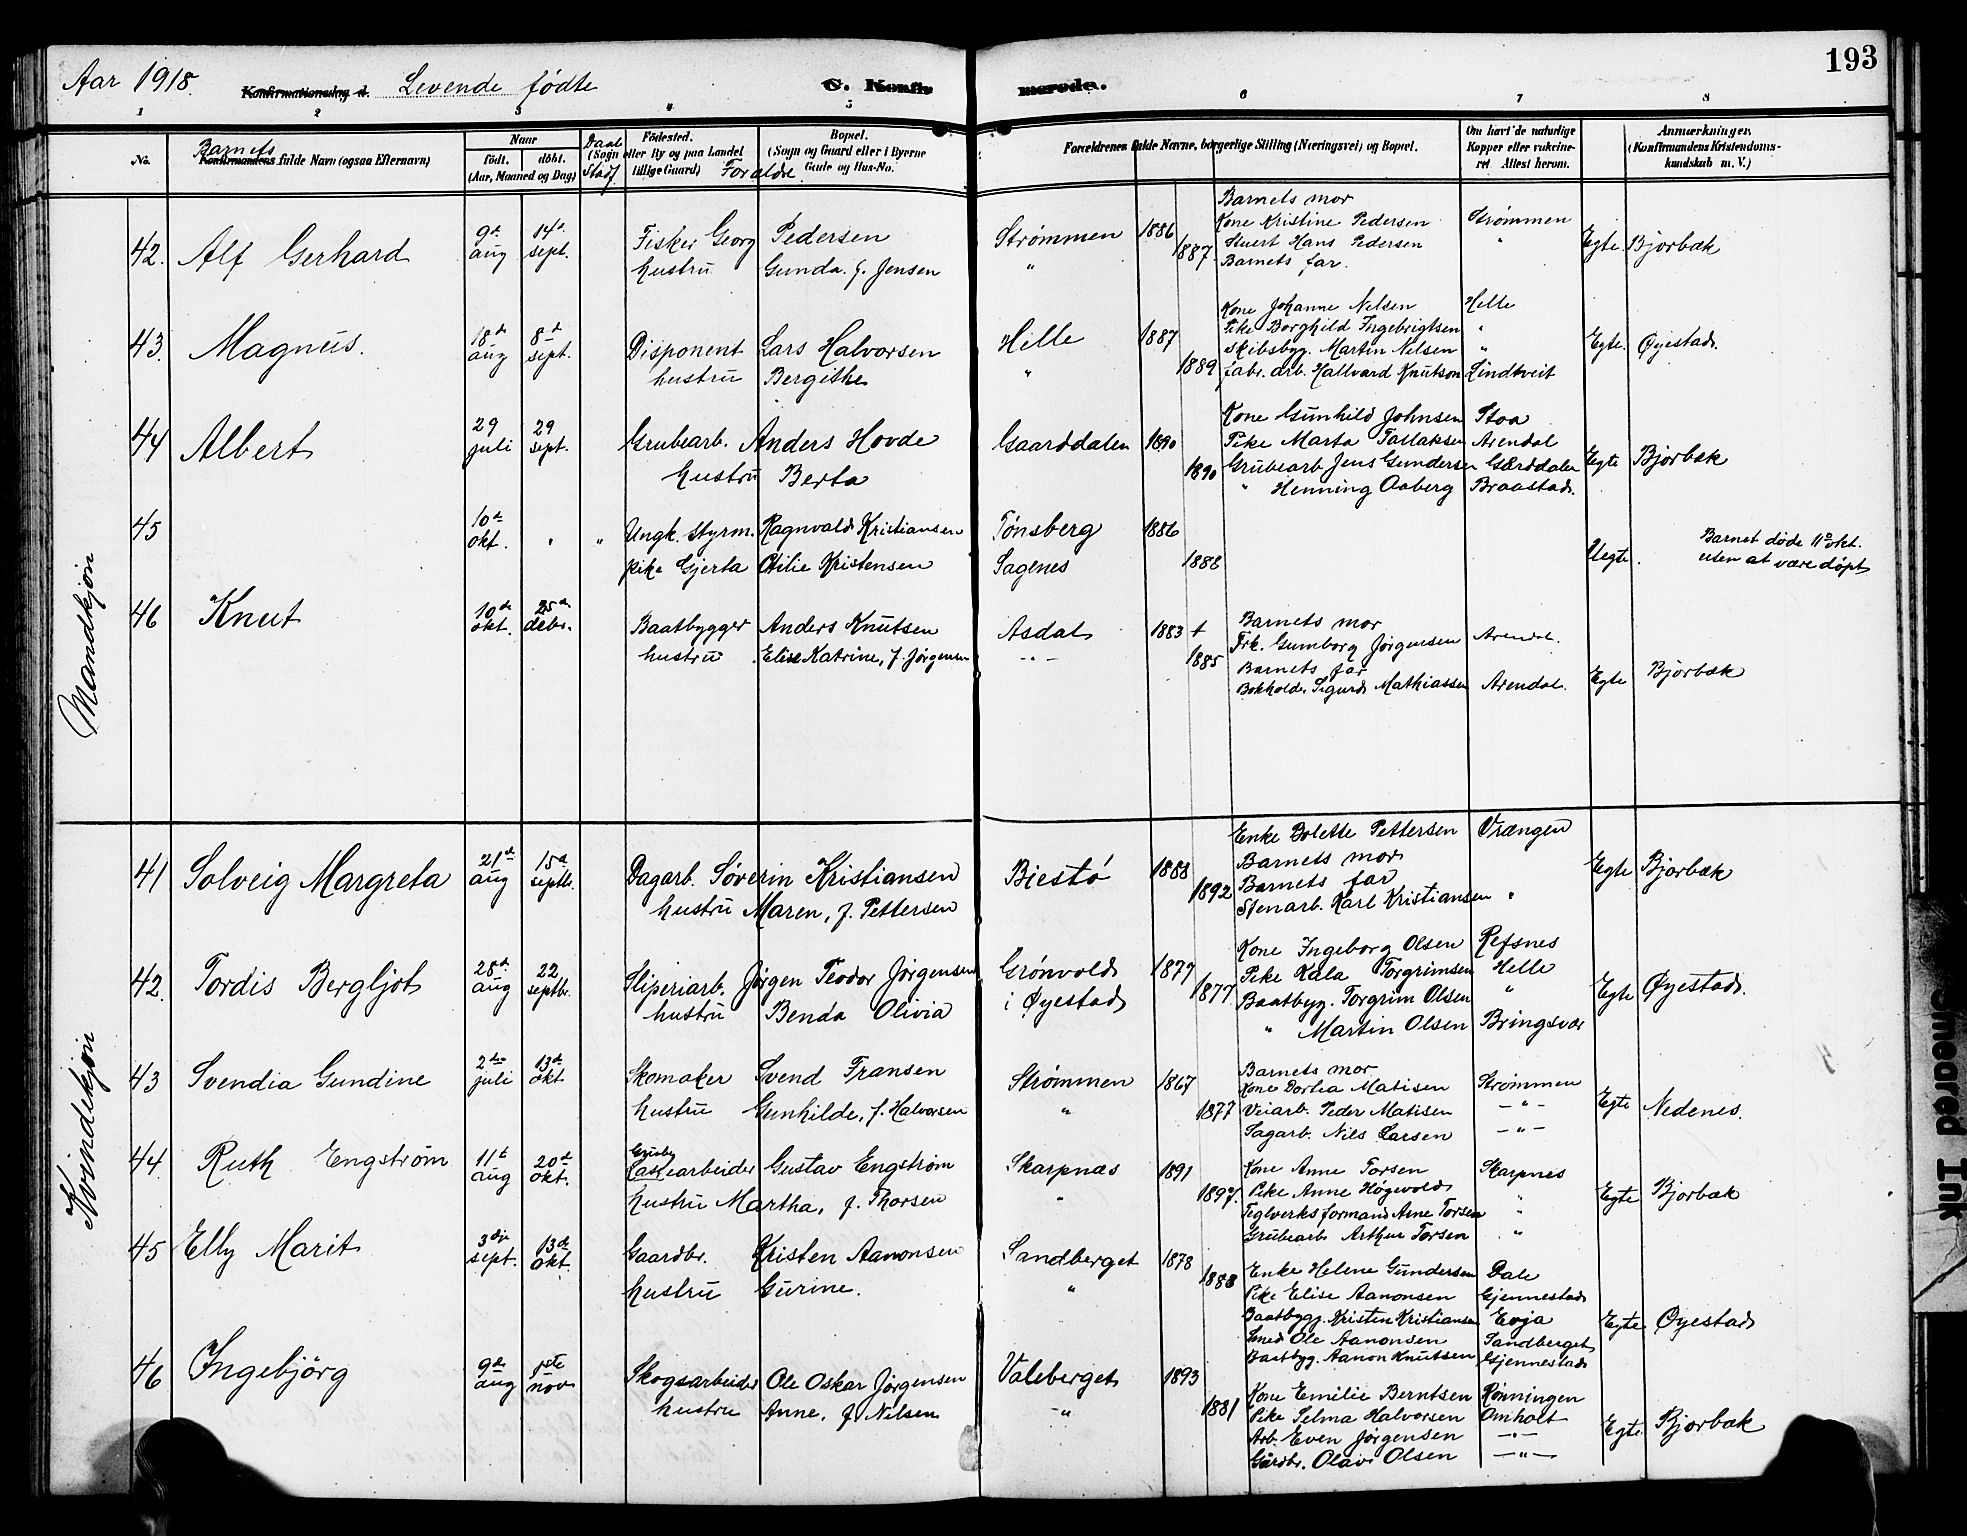 193
Aar 1918. Konfirmationsdag d. Levende fødte C. Konfirmerede.
1 2 3 4 5 6 7 8
No.
Barnets
Konfirmandens fulde Navn (ogsaa Efternavn)
Naar
født. døbt.
(Aar, Maaned og Dag)
Daab
Stad
Fødested.
(Sogn eller By og paa Landet
tillige Gaard)
Bopæl.
(Sogn og Gaard eller i Byerne
Gade og Hus-No.
Forældre
Forældrenes fulde Navne, borgerlige Stilling (Næringsvei) og Bopæl.
Om havt de naturlige
Kopper eller vakcine-
ret. Attest herom.
Anmærkninger.
(Konfirmandens Kristendoms-
kundskab m. V.)
Mandkjøn
42. Alf Gerhard 9de aug 14de sept. Fisker Georg Pedersen Strømmen 1886
hustru Gunda f. Jensen " 1887
Barnets mor
Kone Kristine Pedersen Strømmen
Stuert Hans Pedersen "
Barnets far.
Egte Bjorbæk
43. Magnus. 18de aug 8de sept. Disponent Lars Halvorsen Helle 1887
hustru Bergithe " 1889
Kone Johanne Nelsen Helle
Pike Borghild Ingebrigtsen "
Skibsbyg. Martin Nelsen "
fabr. arb. Hallvard Knutson Lindtveit
Egte. Øyestad.
44 Albert 29 juli 29 sept. Grubearb. Anders Hovde Gaarddalen 1890
hustru Berta 1890
Kone Gunhild Johnsen Stoa
Pike Marta Tallaksen Arendal
Grubearb Jens Gundersen Gærddalen
" Henning Aaberg Braastad.
Egte Bjorbæk
45 10de okt. " " Ungk. styrm. Ragnvald Kristiansen Tønsberg 1886
pike Gjerta Otilie Kristensen Sagenes 1888
Uegte. Barnet døde 11te okt.
uten at være døpt
46 Knut 10de okt. 25de debr. Baatbygger Anders Knutsen Asdal 1883 +
hustru Elise Katrine, f. Jørgensen -"- 1885
Barnets mor
Frk. Gumborg Jørgensen Arendal.
Barnets far
Bokholder Sigurd Mathiassen Arendal.
Egte Bjorbæk
Kvindekjøn
41 Solveig Margreta 21de aug 15de septb. Dagarb. Søverin Kristiansen Biestø 1888
hustru Maren, f. Pettersen 1892
Enke Bolette Pettersen Vrængen
Barnets mor
Barnets far
Stenarb. Karl Kristiansen "
Egte Bjorbæk
42. Tordis Bergljot 28de aug 22 septb. Sliperiarb. Jørgen Teodor Jørgensen Grønvold 1879
hustru Benda Olivia i Øyestad 1877
Kone Ingeborg Olsen Refsnes
Pike Kala Torgrimsen Helle
Baatbyg. Torgrim Olsen "
" Martin Olsen Bringsvær
Egte Øyestad.
43 Svendia Gundine 2den juli 13de okt Skomaker Svend Fransen Strømmen 1867
hustru Gunhilde, f. Halvorsen " 1877
Barnets mor
Kone Dorthea Matisen Strømmen
Veiarb. Peder Matisen -"-
Sagarb. Nils Larsen -"-
Egte Nedenes.
44. Ruth Engström 11te aug 20de okt. Lassearbeider Gustav Engstrøm Skarpnæs 1891
Grube
hustru Martha, f. Thorsen " 1897.
Kone Anne Torsen Skarpnes
Pike Anne Høgevold "
Teglverksformand Arne Torsen "
Grubearb Arthur Torsen "
Egte Bjorbæk
45 Elly Marit 3die sept. 13de okt. Gaardbr. Kristen Aanonsen Sandberget 1878
hustru Gurine. " 1888
Enke Helene Gundersen Dale
Pike Elise Aanonsen Gjennestad
Baatbygg. Kristen Kristiansen Evja
Smed Ole Aanonsen Sandberget
Baatbyg. Aanon Knutsen Gjennestad
Egte Øyestad
46 Ingebjörg 9de aug 1ste nov Skogsarbeider Ole Oskar Jørgensen Valeberget 1893
hustru Anne, f. Nilsen -"- 1881
Kone Emilie Berntsen Rønningen
Pike Selma Halvorsen Omholt
Arb. Even Jørgensen -"-
Gårdbr. Olavi Olsen -"-
Egte Bjorbæk
Smeared Ink